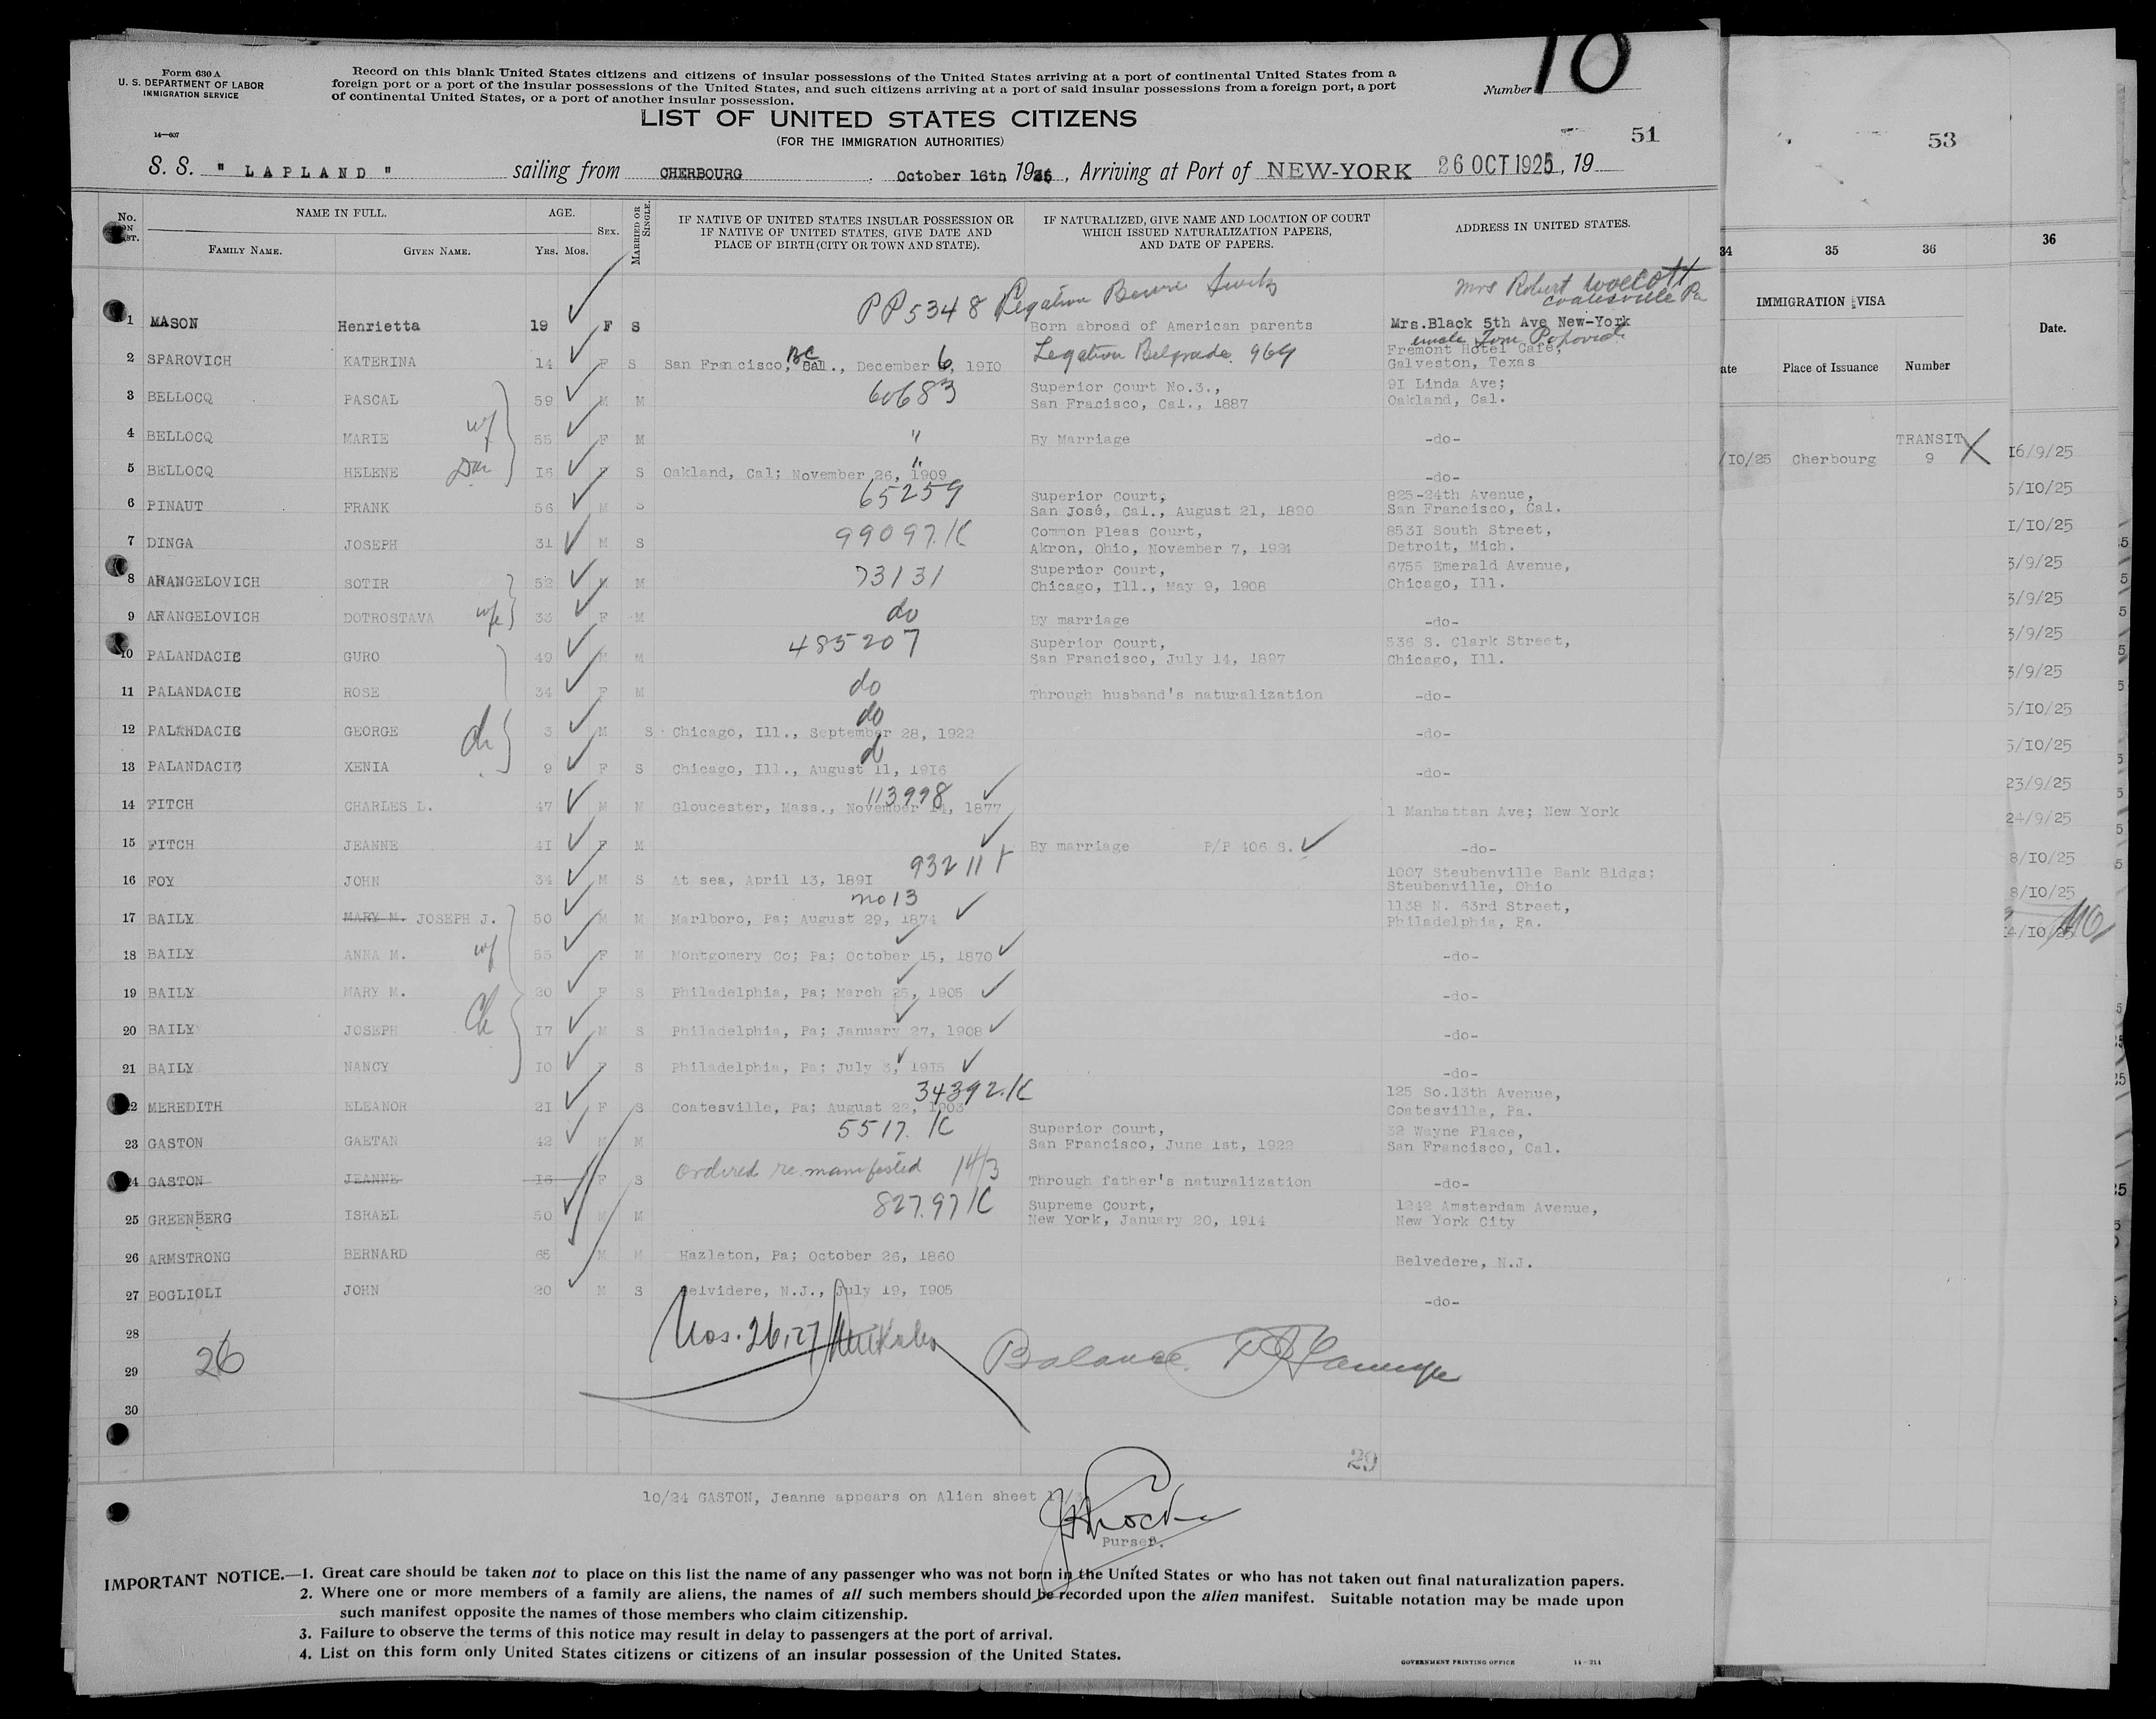 Form 630 A
U. S. DEPARTMENT OF LABOR
IMMIGRATION SERVICE
14—607
Record on this blank United States citizens and citizens of insular possessions of the United States arriving at a port of continental United States from a
foreign port or a port of the insular possessions of the United States, and such citizens arriving at a port of said insular possessions from a foreign port, a port
of continental United States, or a port of another insular possession.
Number 10
LIST OF UNITED STATES CITIZENS
(FOR THE IMMIGRATION AUTHORITIES)
51
S. S. " LAPLAND " sailing from CHERBOURG October 16th, 19 , Arriving at Port of NEW-YORK 26 OCT 1925, 19
No. ON LIST. NAME IN FULL. AGE. SEX. MARRIED OR SINGLE. IF NATIVE OF UNITED STATES INSULAR POSSESSION OR IF NATIVE OF UNITED STATES, GIVE DATE AND PLACE OF BIRTH (CITY OR TOWN AND STATE). IF NATURALIZED, GIVE NAME AND LOCATION OF COURT WHICH ISSUED NATURALIZATION PAPERS, AND DATE OF PAPERS. ADDRESS IN UNITED STATES.
FAMILY NAME. GIVEN NAME. Yrs. Mos.
PP 5348 Legation Berne Switz Mrs Robert Wolcott
Coatesville Pa
1 MASON Henrietta 19 F S Born abroad of American parents Mrs.Black 5th Ave New-York
uncle Tom Popovich
2 SPAROVICH KATERINA 14 F S San Francisco, Cal., December 6, 1910 Legation Belgrade 969 Fremont Hotel Cafe,
Galveston, Texas
3 BELLOCQ PASCAL 59 M M 60683 Superior Court No.3., 91 Linda Ave;
San Fracisco, Cal., 1887 Oakland, Cal.
4 BELLOCQ MARIE wf 55 F M " By Marriage -do-
5 BELLOCQ HELENE Dau 16 F S Oakland, Cal; November 26, 1909 " -do-
6 PINAUT FRANK 56 M S 65259 Superior Court, 825-24th Avenue,
San José, Cal., August 21, 1890 San Francisco, Cal.
7 DINGA JOSEPH 31 M S 99097.K Common Pleas Court, 8531 South Street,
Akron, Ohio, November 7, 1924 Detroit, Mich.
8 ARANGELOVICH SOTIR 52 M M 73131 Superior Court, 6755 Emerald Avenue,
Chicago, Ill., May 9, 1908 Chicago, Ill.
9 ARANGELOVICH DOTROSTAVA wfe 33 F M do By marriage -do-
10 PALANDACIC GURO 49 M M 485207 Superior Court, 536 S. Clark Street,
San Francisco, July 14, 1897 Chicago, Ill.
11 PALANDACIC ROSE 34 F M do Through husband's naturalization -do-
12 PALANDACIC GEORGE ch 3 M S do Chicago, Ill., September 28, 1922 -do-
13 PALANDACIC XENIA 9 F S d Chicago, Ill., August 11, 1916 -do-
14 FITCH CHARLES L. 47 M M 113998 Gloucester, Mass., November 14, 1877 1 Manhattan Ave; New York
15 FITCH JEANNE 41 F M By marriage P/P 406 S. -do-
16 FOY JOHN 34 M S At sea, April 13, 1891 93211 1007 Steubenville Bank Bldgs;
Steubenville, Ohio
17 BAILY MARY M. JOSEPH J. 50 M M no 13 Marlboro, Pa; August 29, 1874 1138 N. 63rd Street,
Philadelphia, Pa.
18 BAILY ANNA M. wf 55 F M Montgomery Co; Pa; October 15, 1870 -do-
19 BAILY MARY M. 20 F S Philadelphia, Pa; March 25, 1905 -do-
20 BAILY JOSEPH Ch 17 M S Philadelphia, Pa; January 27, 1908 -do-
21 BAILY NANCY 10 F S Philadelphia, Pa; July 3, 1915 -do-
22 MEREDITH ELEANOR 21 F S 34392.K Coatesville, Pa; August 22, 1903 125 So.13th Avenue,
Coatesville, Pa.
23 GASTON GAETAN 42 M M 5517. K Superior Court, 32 Wayne Place,
San Francisco, June 1st, 1922 San Francisco, Cal.
24 GASTON JEANNE 16 F S Ordered re manifested 14/3 Through father's naturalization -do-
25 GREENBERG ISRAEL 50 M M 82797 K Supreme Court, 1242 Amsterdam Avenue,
New York, January 20, 1914 New York City
26 ARMSTRONG BERNARD 65 M M Hazleton, Pa; October 26, 1860 Belvedere, N.J.
27 BOGLIOLI JOHN 20 M S Belvidere, N.J., July 19, 1905 -do-
28
Nos. 26,27
29 26 Balance
30
29
10/24 GASTON, Jeanne appears on Alien sheet
Purser.
IMPORTANT NOTICE.—1. Great care should be taken not to place on this list the name of any passenger who was not born in the United States or who has not taken out final naturalization papers.
2. Where one or more members of a family are aliens, the names of all such members should be recorded upon the alien manifest. Suitable notation may be made upon
such manifest opposite the names of those members who claim citizenship.
3. Failure to observe the terms of this notice may result in delay to passengers at the port of arrival.
4. List on this form only United States citizens or citizens of an insular possession of the United States.
GOVERNMENT PRINTING OFFICE 14—211
53
34 35 36
IMMIGRATION VISA
ate Place of Issuance Number
TRANSIT
/10/25 Cherbourg 9
36
Date.
16/9/25
5/10/25
1/10/25
3/9/25
3/9/25
3/9/25
3/9/25
5/10/25
5/10/25
23/9/25
24/9/25
8/10/25
8/10/25
4/10/25